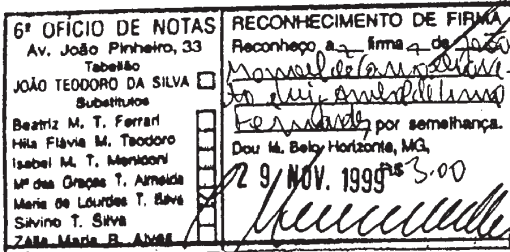 6º OFÍCIO DE NOTAS
Av. João Pinheiro, 33
Tabelião
JOÃO TEODORO DA SILVA
Substitutos
Beatriz M. T. Ferrari
Hila Flávia M. Teodoro
Isabel M. T. Meniconi
Mª das Graças T. Almeida
Maria de Lourdes T. Silva
Silvino T. Silva
Zália Maria B. Alves
RECONHECIMENTO DE FIRMA
Reconheço a firma de João
Manoel de
to
Fernandes por semelhança.
Dou fé, Belo Horizonte, MG,
29 NOV. 1999 R$ 3.00